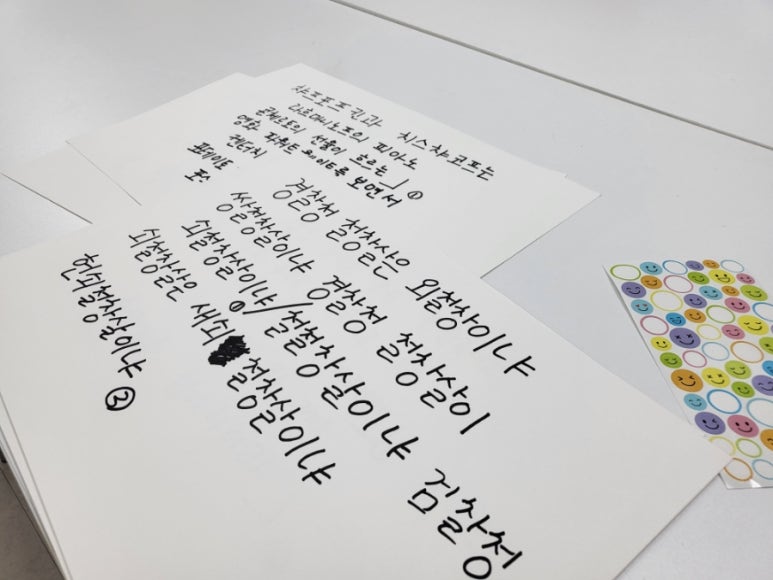 챠프포프킨과 치스챠코프는
라흐마니노프의 피아노
콘체르토의 선율이 흐르는 ①
영화 파워트 웨이트를 보면서
켄터키
포테이토
경찰청 철창살은 외철창이냐
쌍철창살이냐 경찰청 철창살이
쇠철창살이냐 ① / 철철창살이냐 검찰청
쇠철창살은 새쇠 철창살이냐
헌쇠철창살이냐 ②